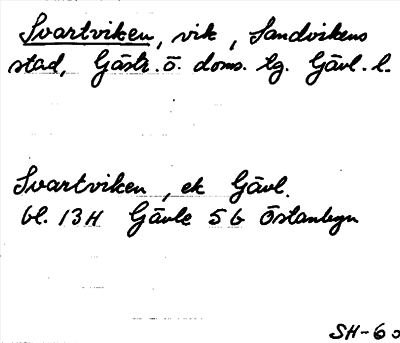 Svartviken, vik, Sandvikens
stad, Gästr. ö. doms. lg. Gävl. l.
Svartviken, ek Gävl.
bl. 13H Gävle 5 b Östanbyn
SH-60